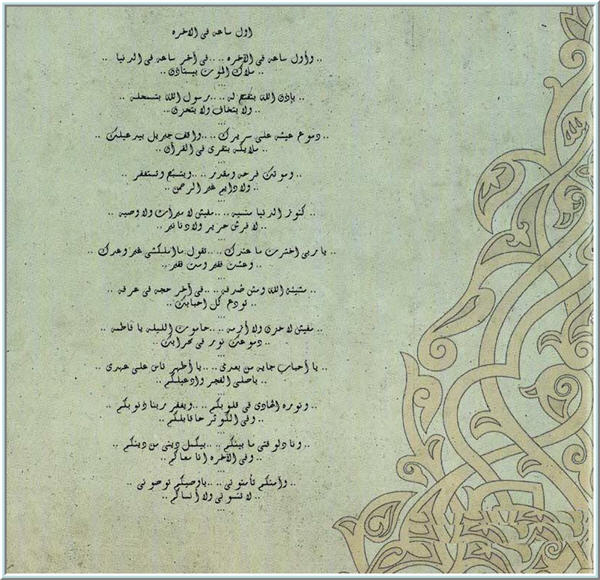 اول ساعه فى الاخره
.. وأول ساعه فى الآخره .. .. فى أخر ساعه فى الدنيا ..
.. ملاك الموت بيستأذن ..
...
.. بإذن الله بتفتح له .. .. رسول الله بتسمعله ..
.. ولا بتخاف ولا بتحزن ..
...
.. دموع عيشه على سريرك .. .. واقف جبريل بيدعيلك ..
.. ملايكه بتقرى فى القرآن ..
...
.. وموتك فرحه ومقدر .. .. وبتسبح وتستغفر ..
.. ولا دايم غير الرحمن ..
...
.. كنوز الدنيا منسيه .. .. مفيش لا ميراث ولا وصيه ..
.. لا فرش حرير ولا دنانير ..
...
.. يا ربى اخترت ما عندك .. .. تقول ما املكشى غير وعدك ..
.. وعشت فقير ومت فقير ..
...
.. مشيئة الله ومش صدفه .. .. فى أخر حجه فى عرفه ..
.. تودع كل احبابك ..
...
.. مفيش لا حزن ولا أزمه .. .. حاموت الليله يا فاطمه ..
.. دموعك نور فى محرابك ..
...
.. يا أحباب جايه من بعدى .. .. يا أطهر ناس على عهدى ..
.. باصلى الفجر وادعيلكم ..
...
.. ونوره الهادى فى قلوبكم .. .. ويغفر ربنا ذنوبكم ..
.. وفى الكوثر حاقابلكم ..
...
.. ونا دلوقتى ما بينكم .. .. بيكمل دينى من دينكم ..
.. وفى الآخره انا معاكم ..
...
.. وأمنكم تأمنونى .. .. باوصيكم توصونى ..
.. لا تنسونى ولا أنساكم ..
...